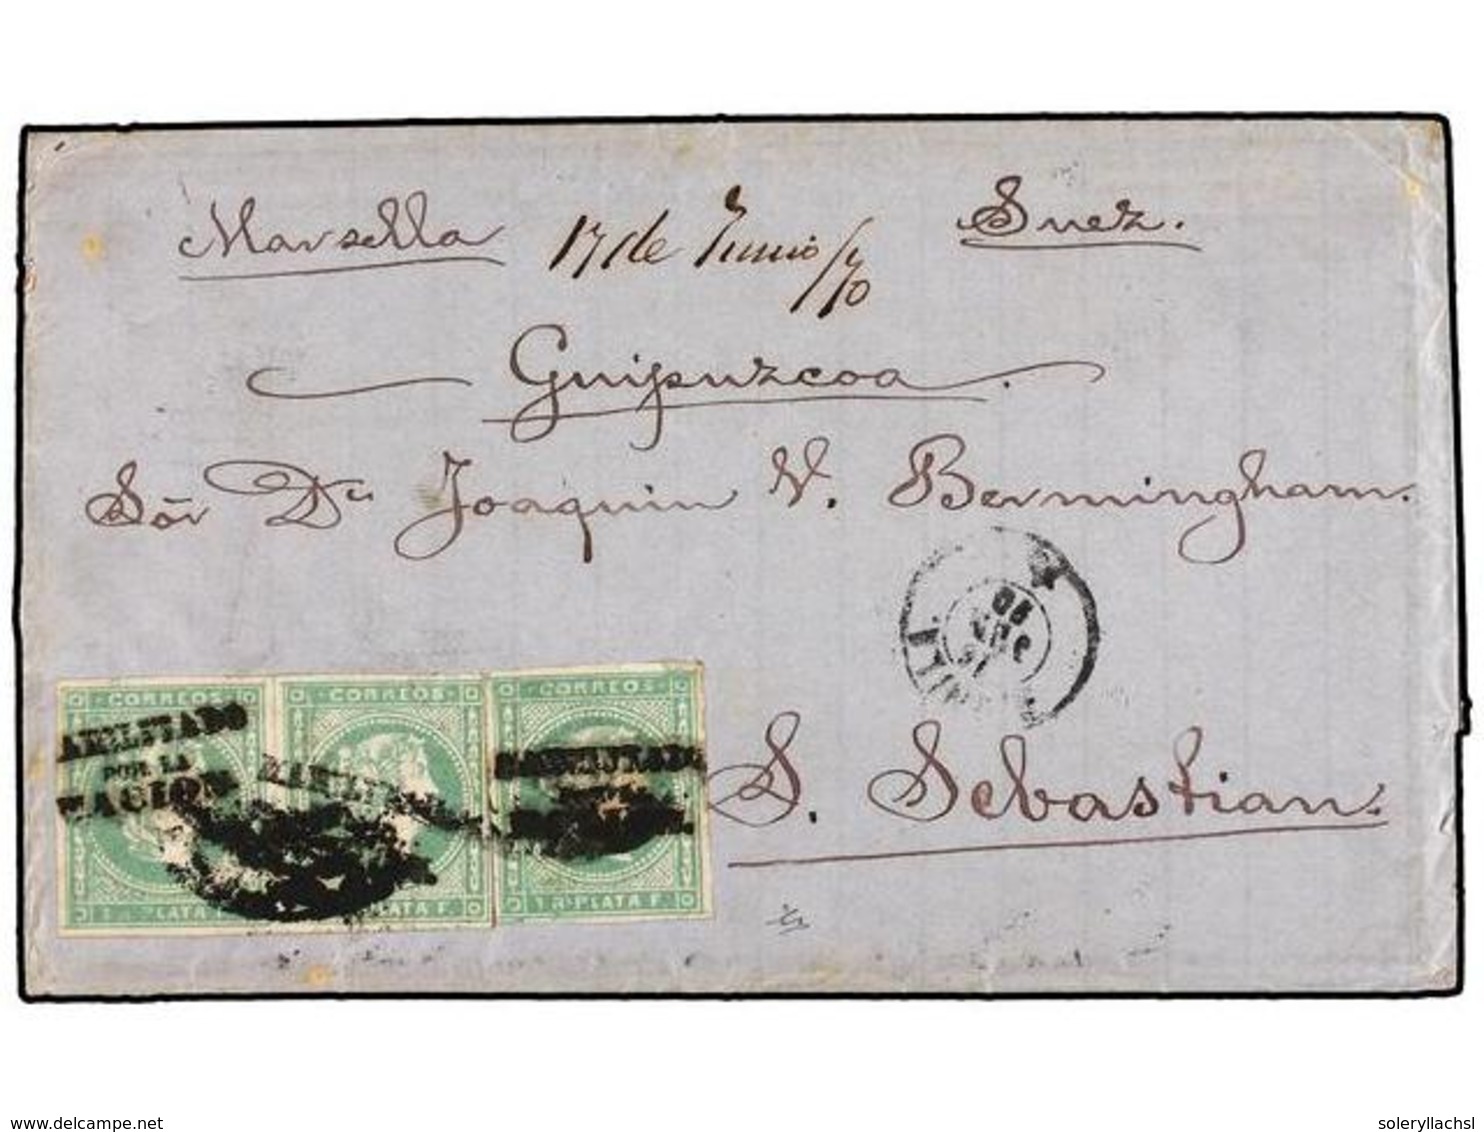 Marsella 17 de Junio/70 Suez.
Guipuzcoa
Sōr Dn Joaquin V. Bermingham.
S. Sebastian.
CORREOS CORREOS CORREOS
HABILITADO
POR LA
NACION
PLATA F. PLATA F. 1 Rl PLATA F.
www.delcampe.net
soleryllachsl